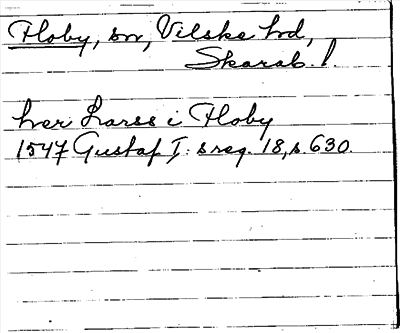 Floby, sn, Vilske hd,
Skarab. l.
her Larss i Floby
1547 Gustaf I: s reg. 18, s 630.